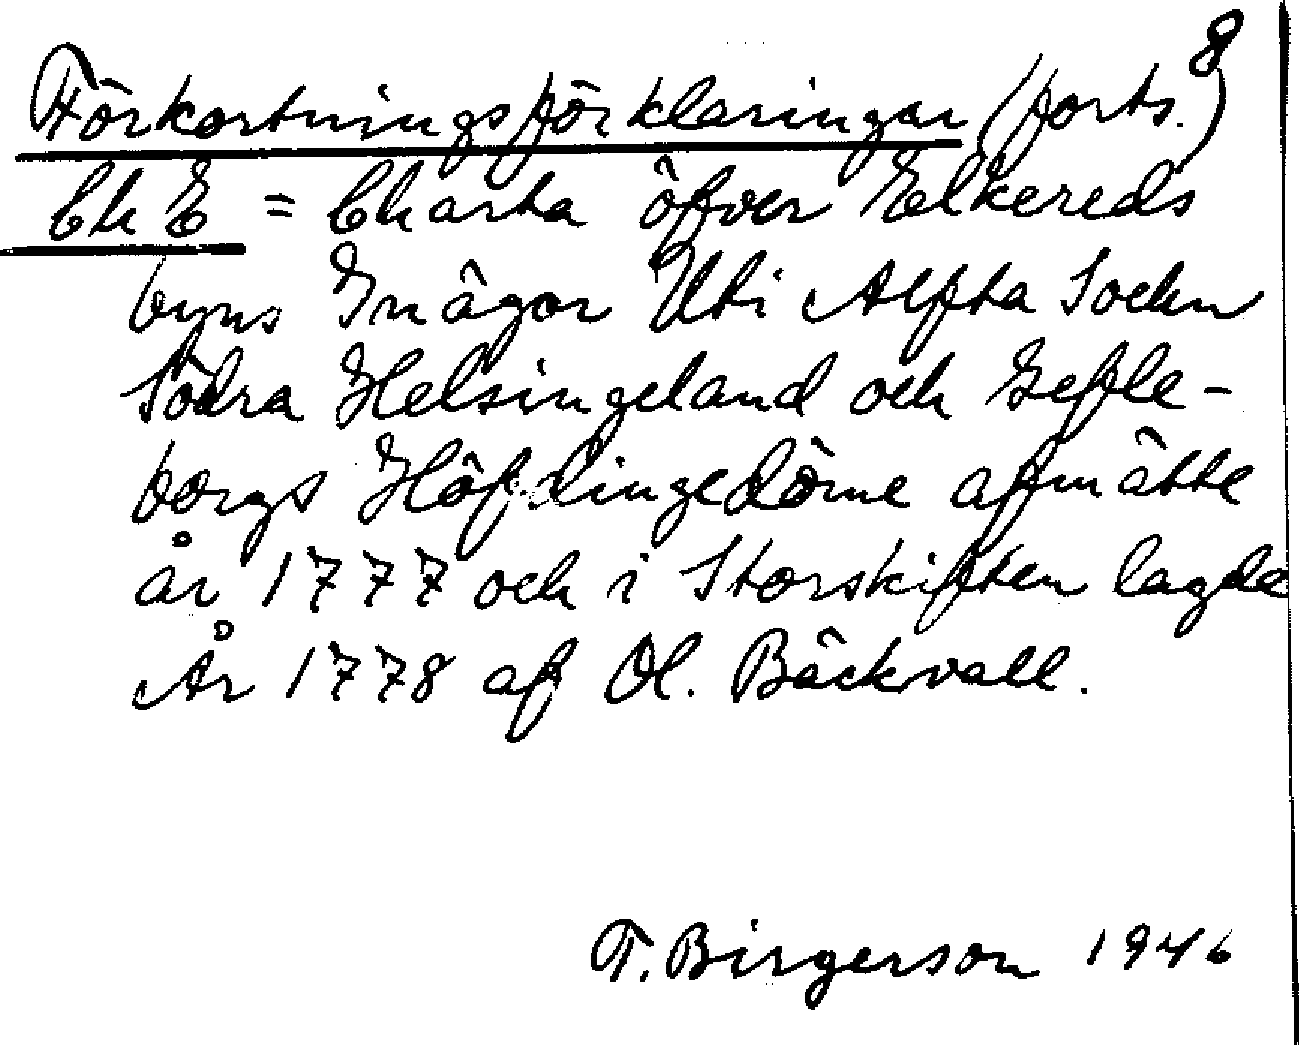 8
Förkortningsförklaringar (forts.)
Ch E = Charta öfver Elkereds
byns Inägor Uti Alfta Sockn
Södra Helsingeland och Gefle-
borgs Höfdingedöme afmätte
år 1777 och i Storskiften lagde
År 1778 af Ol. Bäckvall.
F. Birgerson 1946